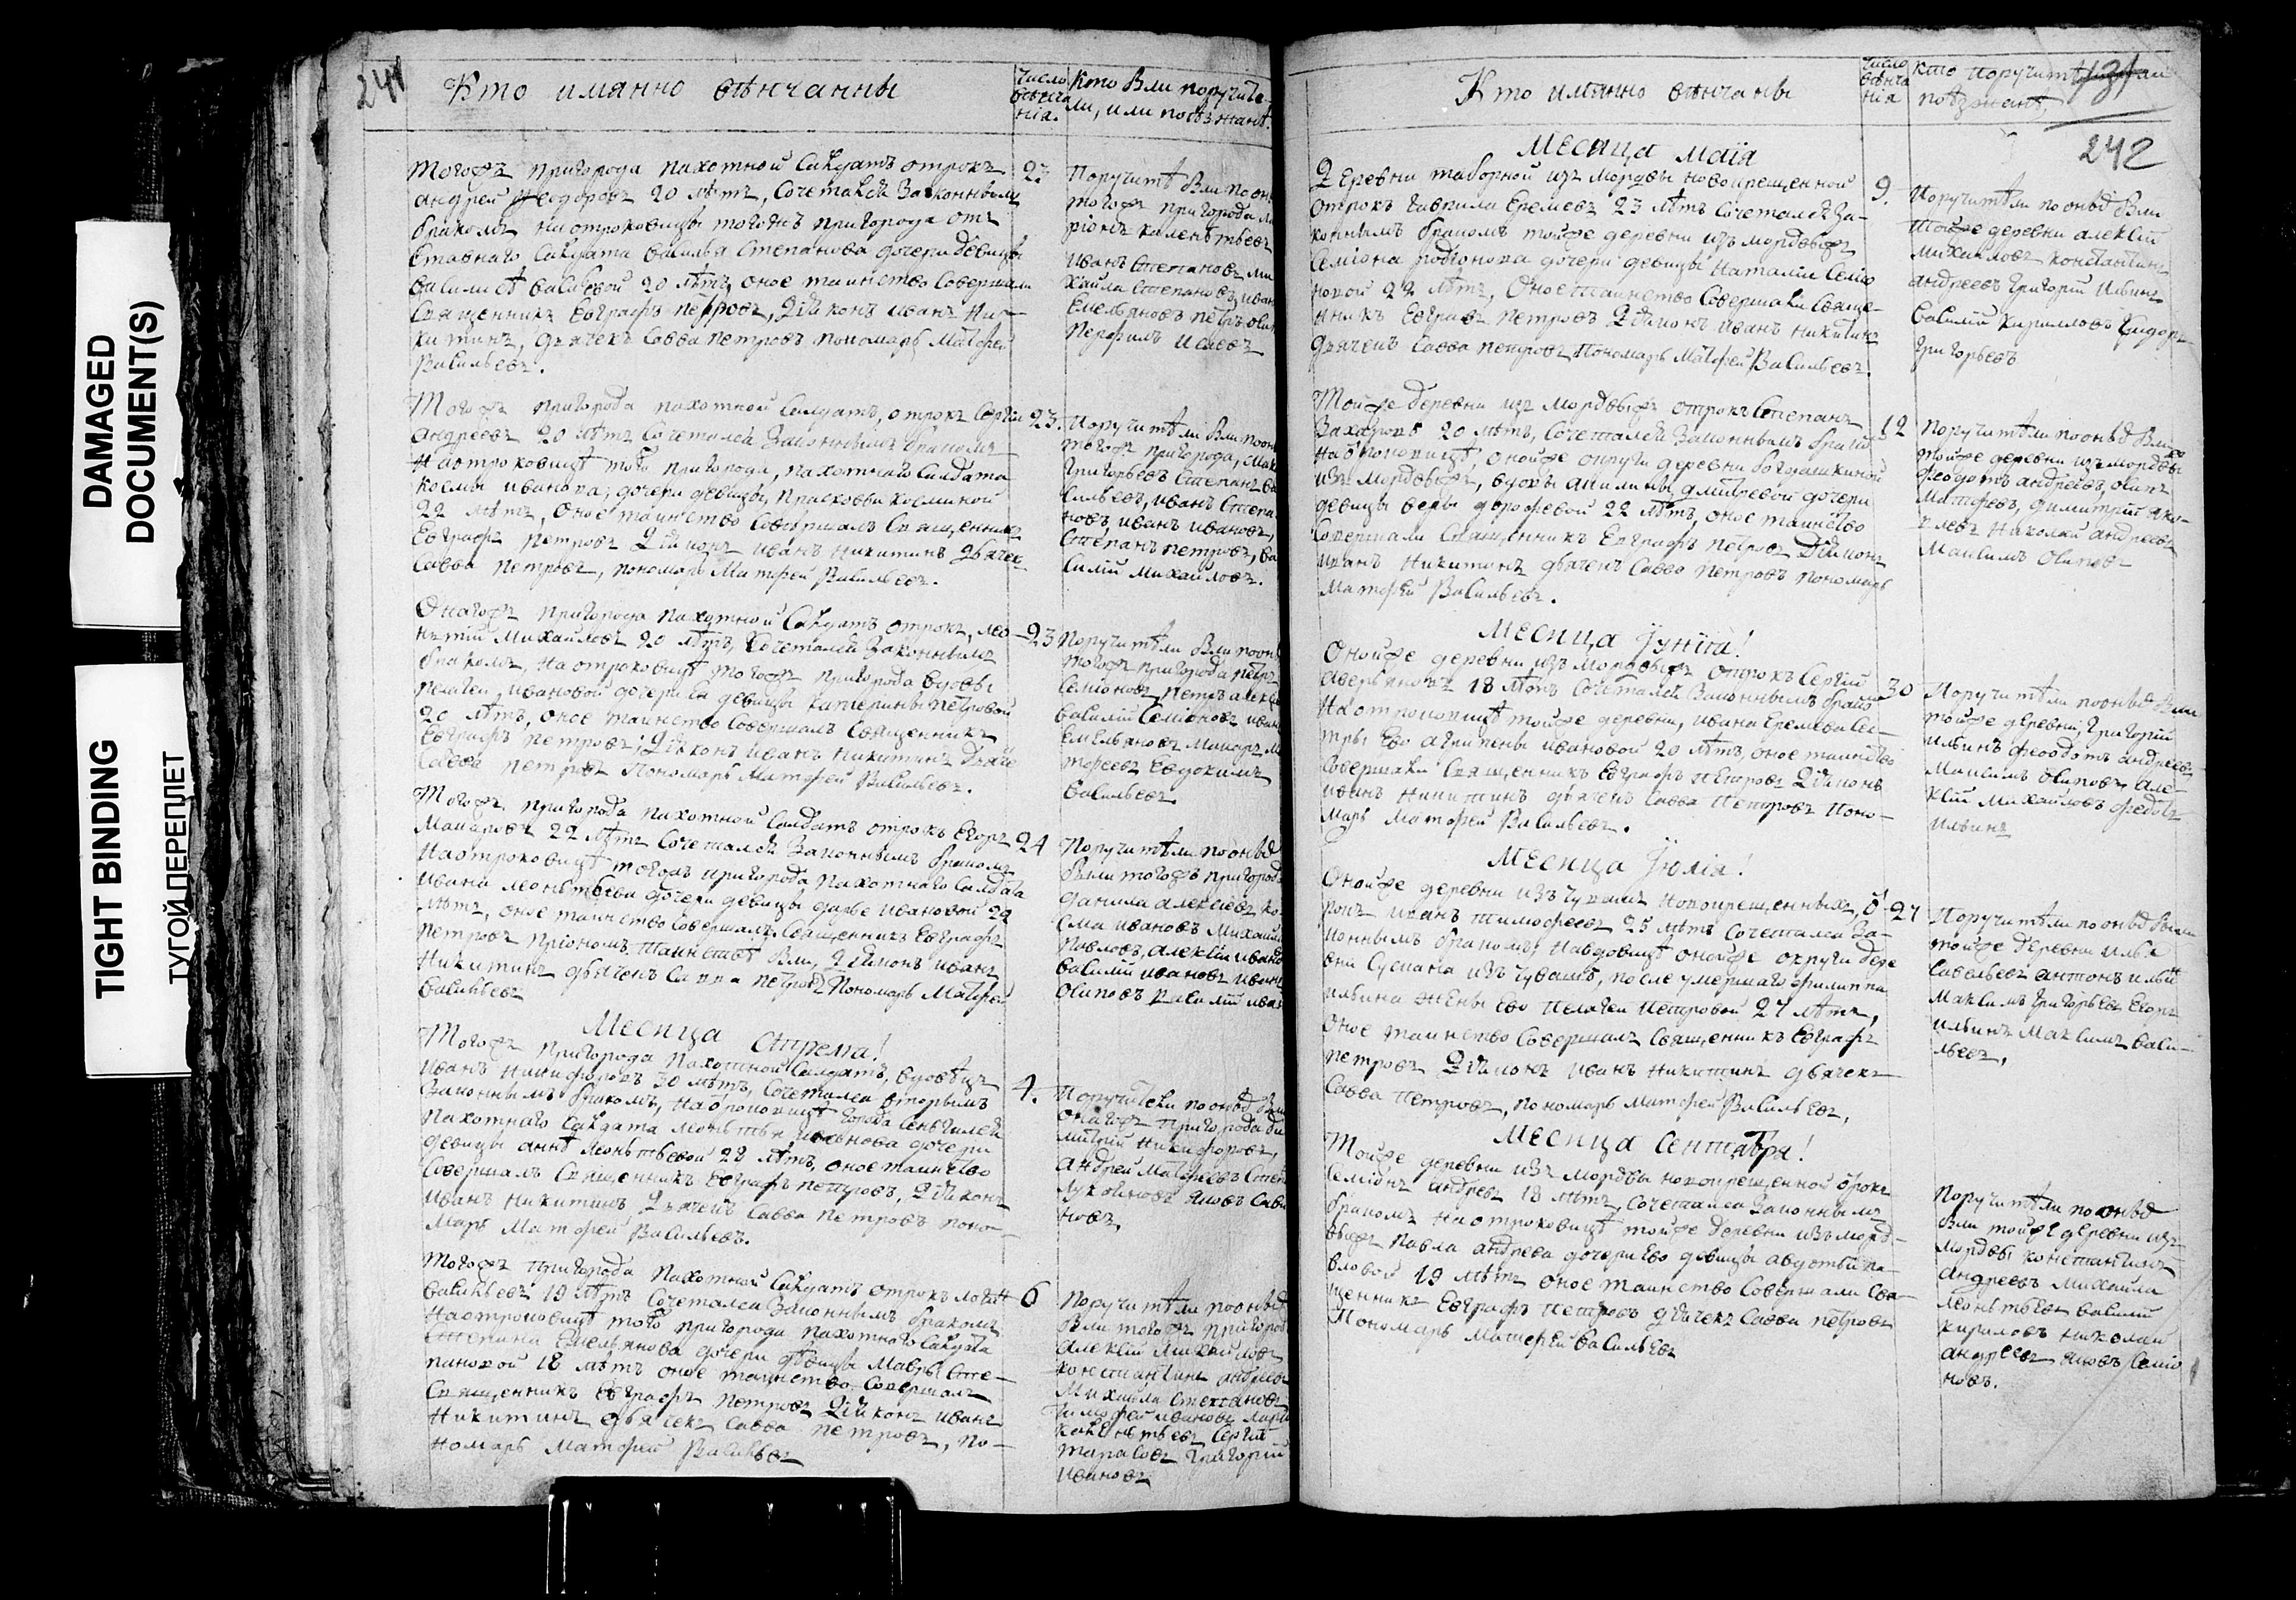 DAMAGED
DOCUMENT(S)
TIGHT BINDING
ТУГОЙ ПЕРЕПЛЕТ
241
Кто имянно вѣнчанны
число вѣнча нія.
Кто бли поручите-
ли, или поѣзжанѣ.
Тогожъ пригорода пахотной салдатъ отрокъ 23
андрей Феодоровъ 20 лѣтъ, сочетался законнымъ
бракомъ на отроковицы тогожъ пригорода отъ
ставнаго салдата василья Степанова дочери девицы
василисѣ васильевой 20 лѣтъ, оное таинство совершали
священникъ Евграфъ петровъ, Діиконъ иванъ Ни-
китинъ, дьячекъ Савва петровъ пономарь Матфей
Васильевъ.
Поручитѣ бли по он
тогож пригорода
иванъ Степановъ ми
хайла Степановъ, иван
Емельяновъ петръ
Перфилъ Исаевъ
Тогожъ пригорода пахотной салдатъ, отрокъ Сергій 23.
андреевъ 20 лѣтъ сочетался законнымъ бракомъ
на отроковицѣ того пригорода, пахотнаго салдата
Космы иванова, дочери девицы, прасковьи косминой
22 лѣтъ, оное таинство совершалъ священникъ
Евграфъ петровъ Діиконъ иванъ никитинъ дьячек
Савва петровъ, пономарь Матфей Васильевъ.
Поручитѣли бли по он
тогож пригорода,
Григорьевъ Степанъ ва
сильевъ, иванъ Степа
новъ, иванъ ивановъ,
Степанъ петровъ, ва
силій михайловъ.
Онагожъ пригорода пахотной салдатъ отрокъ, лео- 23
нтій Михайловъ 20 лѣтъ, сочетался законнымъ
бракомъ, на отроковицѣ тогож пригорода вдовы
пелагеи, ивановой дочери ея девицы катерины петровой
20 лѣтъ, оное таинство совершалъ священникъ
Евграфъ петровъ, Діиконъ иванъ никитинъ дьяче
Савва петровъ пономарь Матфей Васильевъ.
Поручитѣли бли по он
тогож пригорода петръ
Семіоновъ петръ алекс
василій Семіоновъ иван
Емельяновъ макаръ м
тфеевъ Евдокимъ
васильевъ
Тогожъ пригорода пахотной салдатъ отрокъ Егоръ 24
Макаровъ 22 лѣтъ сочетался законнымъ бракомъ
на отроковицѣ тогожъ пригорода, пахотнаго салдата
ивана леонтьева дочери девицы дарье ивановой 20
лѣтъ, оное таинство совершалъ священникъ Евграфъ
петровъ при ономъ таинствѣ бли, Діиконъ иванъ
Никитинъ дьячекъ Савва петровъ Пономарь Матфей
васильевъ
Поручитѣли по онѣд
бли тогожъ пригород
данила алексѣевъ ко
сма ивановъ михаил
павловъ, алексій ивано
василій ивановъ иванъ
осиповъ василій иван
Месяца Апреля!
Тогожъ пригорода пахотной салдатъ, вдовѣцъ 4.
иванъ никифоровъ 30 лѣтъ, сочетался вторымъ
законнымъ бракомъ, на отроковицѣ города сенгилея
пахотнаго салдата дочери
девицы аннѣ леонтьевой 22 лѣтъ, оное таинство
совершалъ священникъ Евграфъ петровъ, Діиконъ
иванъ никитинъ Дьячекъ Савва петровъ поно-
марь Матфей Васильевъ.
Поручители по онѣд бли
онагож пригорода ди
митрій никифоровъ,
андрей Матфеевъ Степ
яковъ Сави
новъ,
Тогожъ пригорода пахотной салдатъ отрокъ логин 6
васильевъ 19 лѣтъ сочетался законнымъ бракомъ
на отроковицѣ того пригорода пахотнаго салдата
Степана Емельянова дочери девицы мавры Сте-
пановой 18 лѣтъ оное таинство совершалъ
священникъ Евграфъ петровъ Діиконъ иванъ
никитинъ дьячекъ Савва петровъ, по-
номарь Матфей Васильевъ
Поручитѣли по онѣд
бли тогожъ пригород
алексій михайловъ
константинъ андреев
Михайла Степановъ
Тимофей ивановъ
Сергій
тарасовъ григорій
ивановъ
Кто имянно вѣнчаны
число вѣнча нія
кто поручит
поѣзжанѣ,
131
242
Месяца маія
Деревни таборной изъ мордвы новокрещенной 9.
отрокъ гаврила Еремеевъ 23 лѣтъ сочетался за-
коннымъ бракомъ тойже деревни изъ мордвыж
Семіона родіонова дочери девицы наталіи Семіо
новой 22 лѣтъ, Оное таинство совершали свяще-
нникъ Евграфъ петровъ Діиконъ иванъ никитинъ
дьячекъ Савва петровъ Пономарь Матфей Васильевъ.
Поручитѣли по онѣд бли
тойже деревни алексій
михайловъ константинъ
андреевъ григорій ильинъ
василій кирилловъ
григорьевъ
Тойже деревни изъ мордвыж отрокъ Степанъ 12
Захаровъ 20 лѣтъ, сочетался законнымъ браком
на отроковицѣ, онойже округи деревни богдашкиной
изъ мордвыж, вдовы акилины дмитревой дочери
девицы веры дорофевой 22 лѣтъ, оное таинство
совершали священникъ Евграфъ петровъ Діиконъ
иванъ никитинъ дьячекъ Савва петровъ пономарь
Матфей Васильевъ.
Поручитѣли по онѣд бли
тойже деревни изъ мордвы
феодотъ андреевъ, осипъ
матфеевъ, димитрій яко-
влевъ николай андреевъ
Максимъ осиповъ
Месяца Іунія!
Онойже деревни изъ мордвыж отрокъ Сергій 30
аверьяновъ 18 лѣтъ сочетался законнымъ браком
на отроковицѣ тойже деревни, ивана Еремеева сес-
тры Ево агрипены ивановой 20 лѣтъ, оное таинство
совершали священникъ Евграфъ петровъ Діиконъ
иванъ никитинъ дьячекъ Савва петровъ поно-
марь Матфей Васильевъ.
Поручитѣли по онѣд бли
тойже деревни, григорій
ильинъ феодотъ андреевъ
Максимъ осиповъ але-
ксій михайловъ федотъ
ильинъ
Месяца Іюлія!
Онойже деревни изъ чувашъ новокрещенныхъ, о 27
рокъ иванъ тимофеевъ 25 лѣтъ сочетался за-
коннымъ бракомъ, на вдовицѣ онойже округи дере
вни изъ чувашъ, после умершаго филиппа
ильина жены ево пелагеи петровой 27 лѣтъ,
оное таинство совершалъ священникъ Евграфъ
петровъ Діиконъ иванъ никитинъ дьячекъ
Савва петровъ, пономарь Матфей Васильевъ,
Поручитѣли по онѣд были
тойже деревни илья
Савельевъ антонъ ильи
Максимъ григорьевъ егоръ
ильинъ Максимъ васи-
льевъ,
Месяца Сентября!
Тойже деревни изъ мордвы новокрещенной отрокъ
Семіонъ андреевъ 18 лѣтъ, сочетался законнымъ
бракомъ на отроковицѣ тойже деревни изъ морд-
выж павла андреева дочери Ево девицы авдотьи па-
вловой 19 лѣтъ оное таинство совершали свя-
щенникъ Евграфъ петровъ дьячекъ Савва петровъ
Пономарь Матфей Васильевъ
Поручитѣли по онѣд
бли тойже деревни изъ
мордвы константинъ
андреевъ михайла
леонтьевъ василий
кириловъ николай
андреевъ яковъ Семіо
новъ.